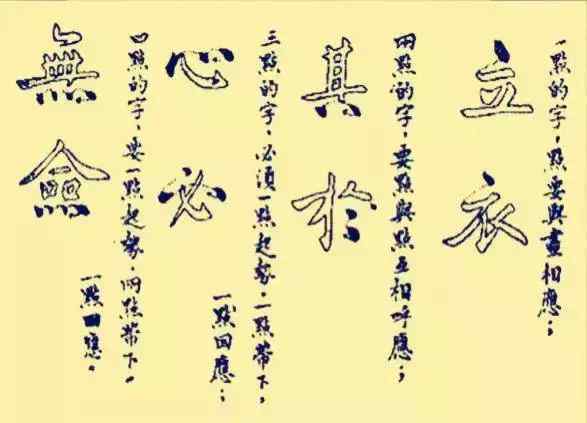 一點的字，點要與畫相應；
立衣
兩點的字，要點與點互相呼應；
其於
三點的字，必須一點起勢，一點帶下，
一點回應；
心必
四點的字，要一點起勢，兩點帶下，
一點回應。
無僉